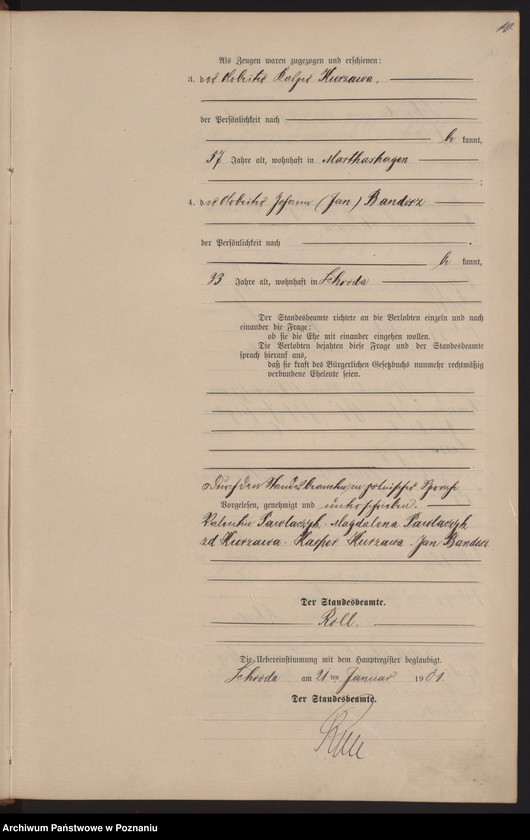 Als Zeugen waren zugezogen und erschienen:
3. der Arbeiter Kasper Kurzawa,
der Persönlichkeit nach
be kannt,
57 Jahre alt, wohnhaft in Marthashagen
;
4. der Arbeiter Johann (Jan) Bandosz
der Persönlichkeit nach
be kannt,
Jahre alt, wohnhaft in Schroda
Der Standesbeamte richtete an die Verlobten einzeln und nach
einander die Frage:
ob sie die Ehe mit einander eingehen wollen.
Die Verlobten bejahten diese Frage und der Standesbeamte
sprach hierauf aus,
daß sie kraft des Bürgerlichen Gesetzbuchs nunmehr rechtmäßig
verbundene Eheleute seien.
Durch den Standesbeamten in polnischer Sprache
Vorgelesen, genehmigt und unterschrieben.
Valentin Pawlaczyk. Magdalena Pawlaczyk
zd Kurzawa. Kasper Kurzawa. Jan Bandosz
Der Standesbeamte.
Roll.
Die Uebereinstimmung mit dem Hauptregister beglaubigt.
Schroda am 21ten Januar 1901.
Der Standesbeamte.
Roll
Archiwum Państwowe w Poznaniu